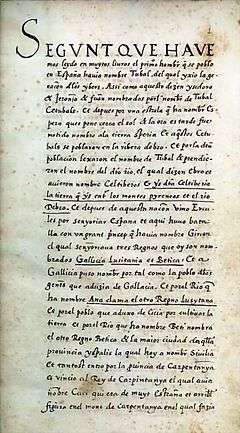 SEGUNT QUE HAVE
mos leydo en muytos liuros el primo hombre q̃ se poblo
en España hauia nombre Tubal, del qual yxio la ge
racion dlos ybers. Assi como aquesto dizen ysidoro
& Jeronjo & fuẽn nombrados por l'nombre de Tubal
Cetubals. Et depues por una estrela q̃ ha nombre
pero ques pone cerca el sol & la ora es tarde fue
metido nombre ala tierra Speria Et aq̃stos Cetu
bals se poblaron en la ribera debro. Et por la dita
poblacion lexaron el nombre de Tubal & prendie
ron el nombre del Rio el qual dizen Ebro et
auieron nombre Celtiberos & ys dita Celtiberia
la tierra q̃ ys entre los montes pyrineos et el rio
Debro. Et depues de aquesto non uino Ercu
les por senyoriar España et aqui huuo bata
lla con un grant princep q̃ hauia nombre Girion
el qual senyoriaua tres Regnos que oy son nom
brados Gallicia Lusitania et Betica. Et a
Gallicia puso nombre por tal como la poblo dlas
gents que aduzia de Gallacia. Et por el Rio q̃
ha nombre Ana clama el otro Regno Lusytano
Et por el poble que aduxo de Grecia por cultiuar la
tierra et por el Rio que ha nombre Ben nombra
el otro Regno Betica & la maior ciudad daq̃lla
prouincia yspalis la qual hoy a nombre Siuilia
Et tantost entro por la prouincia de Carpentanya
et vincio al Rey de Carpintanya el qual auia
nombre Caci que era de muyt estranio et orrible
figura en el mont de Carpentanya en el qual fazia